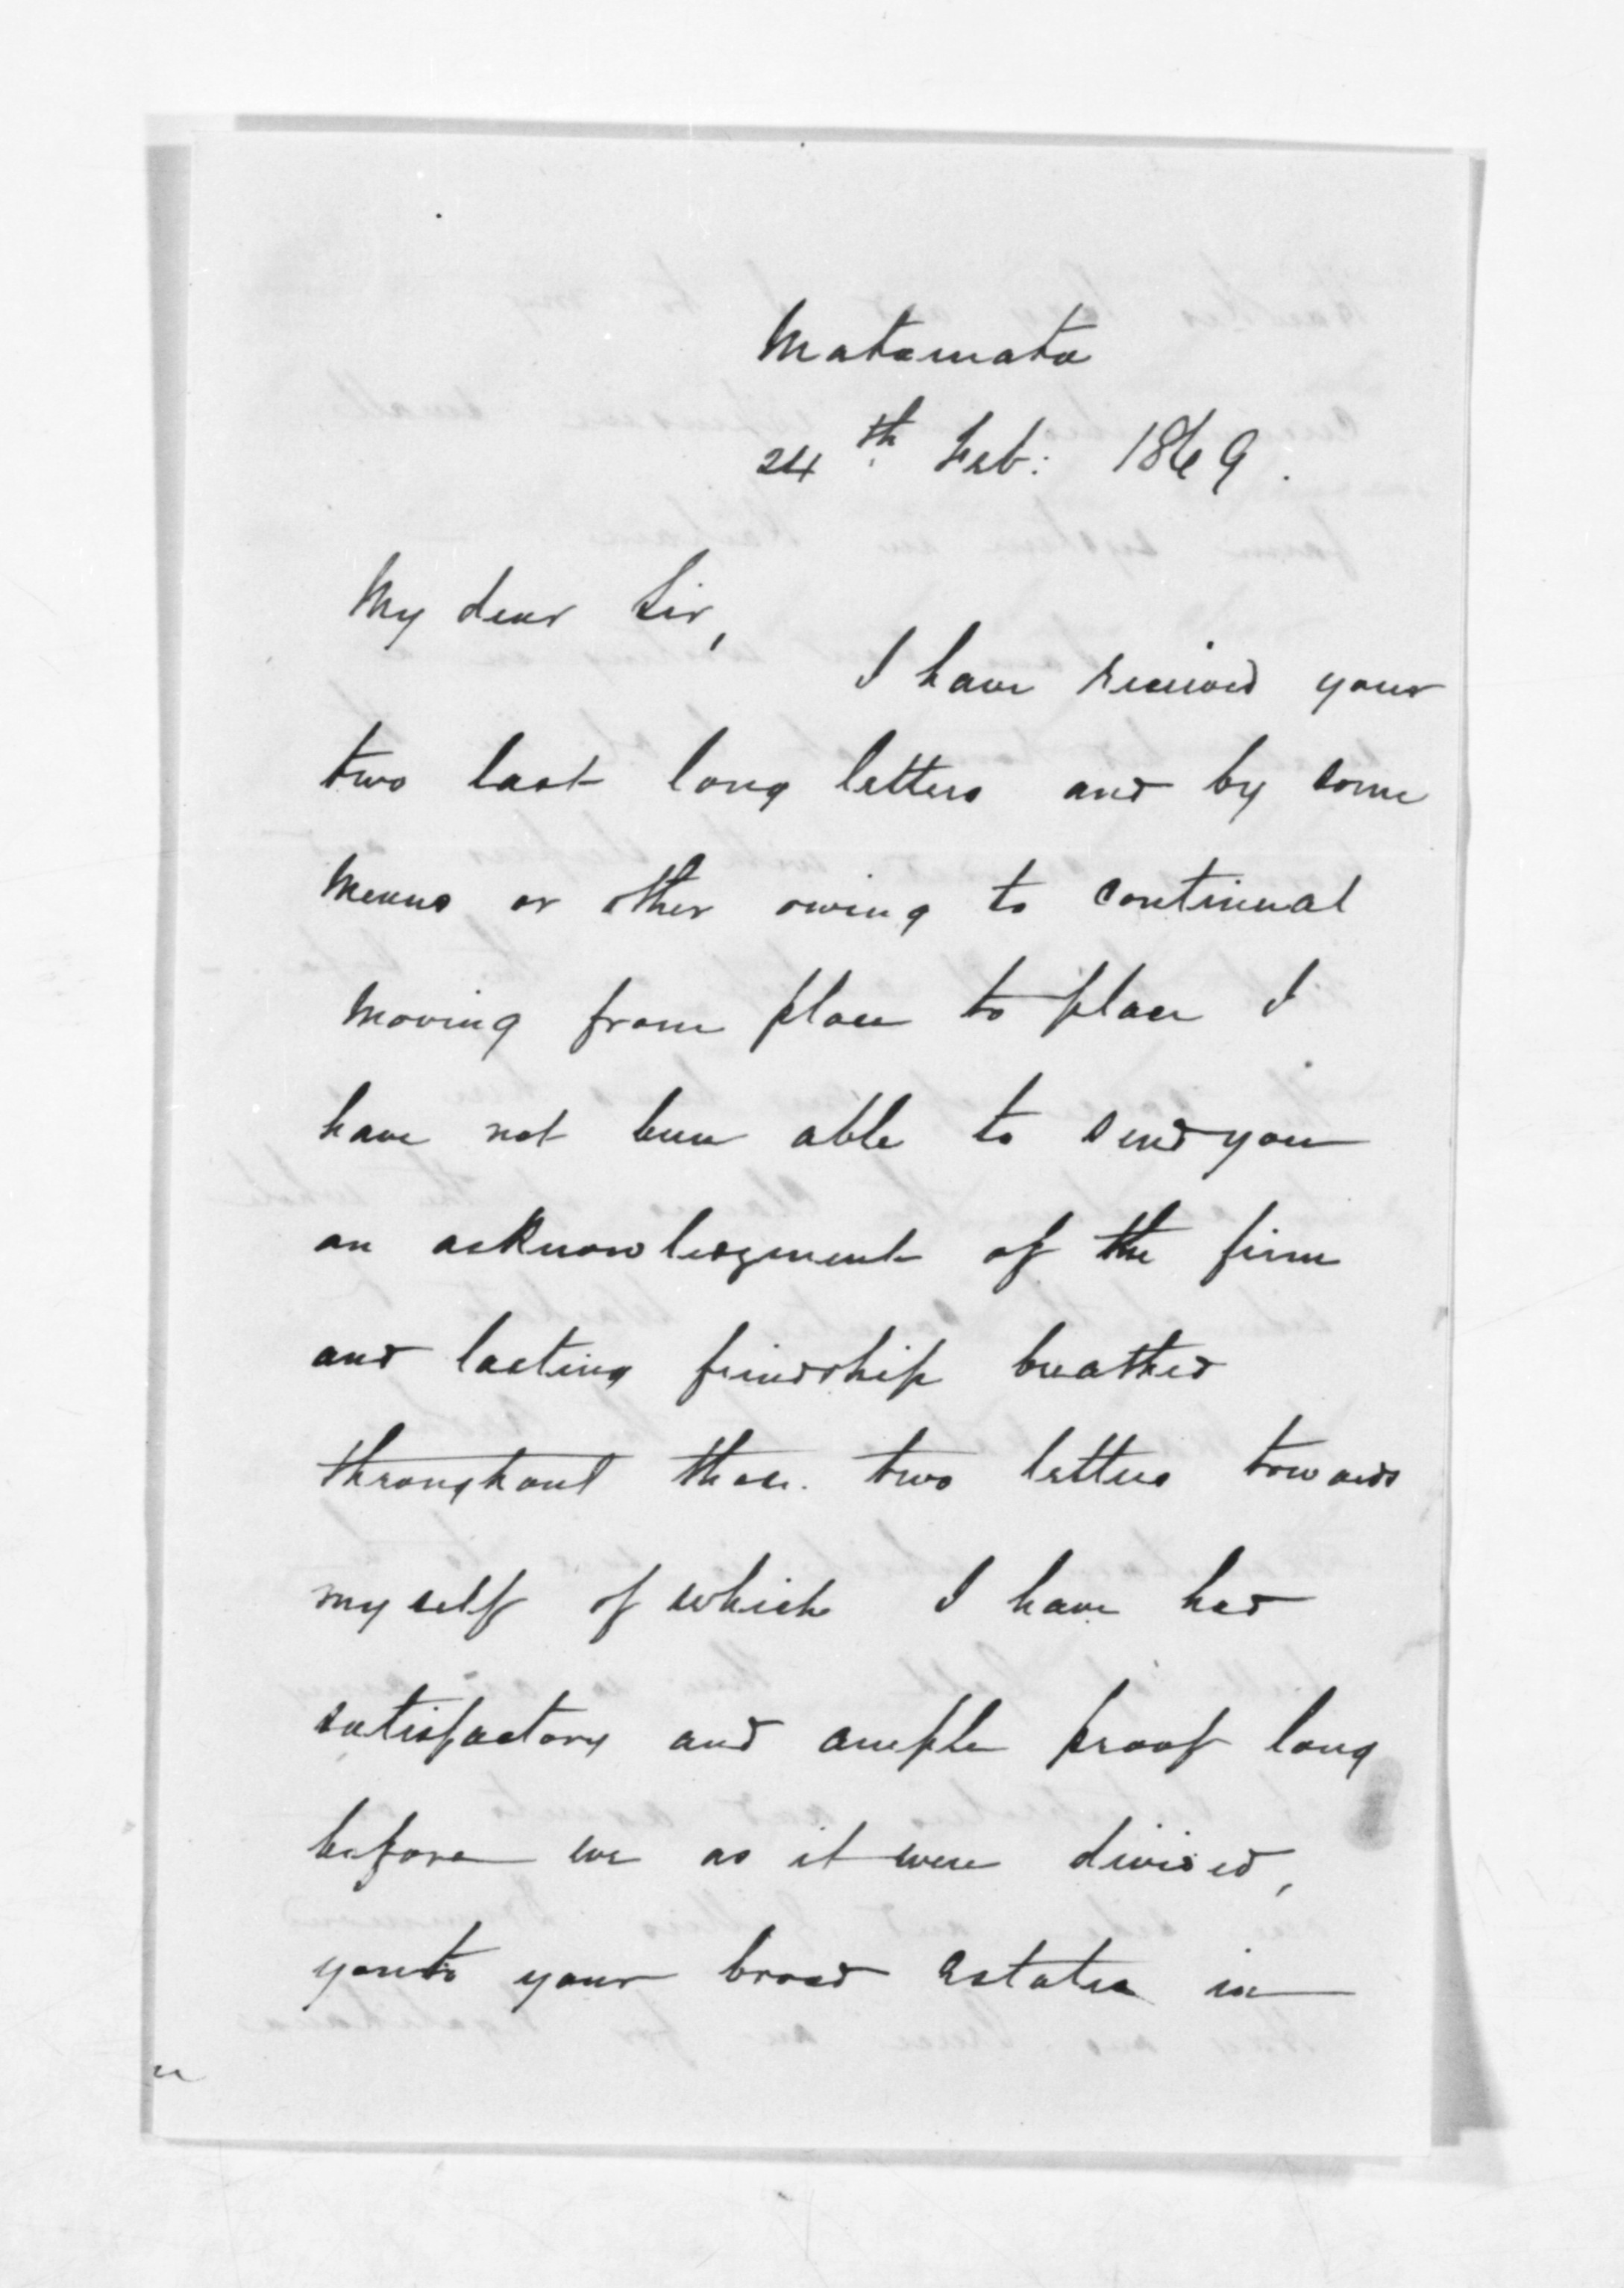 Matamata
24th Feb: 1869.
My dear Sir,
I have received your
two last long letters and by some
means or other owing to continual
moving from place to place I
have not been able to send you
an acknowledgment of the firm
and lasting friendship breathed
throughout those two letters towards
myself of which I have had
satisfactory and ample proof long
before we as it were divided,
you to your broad estates in